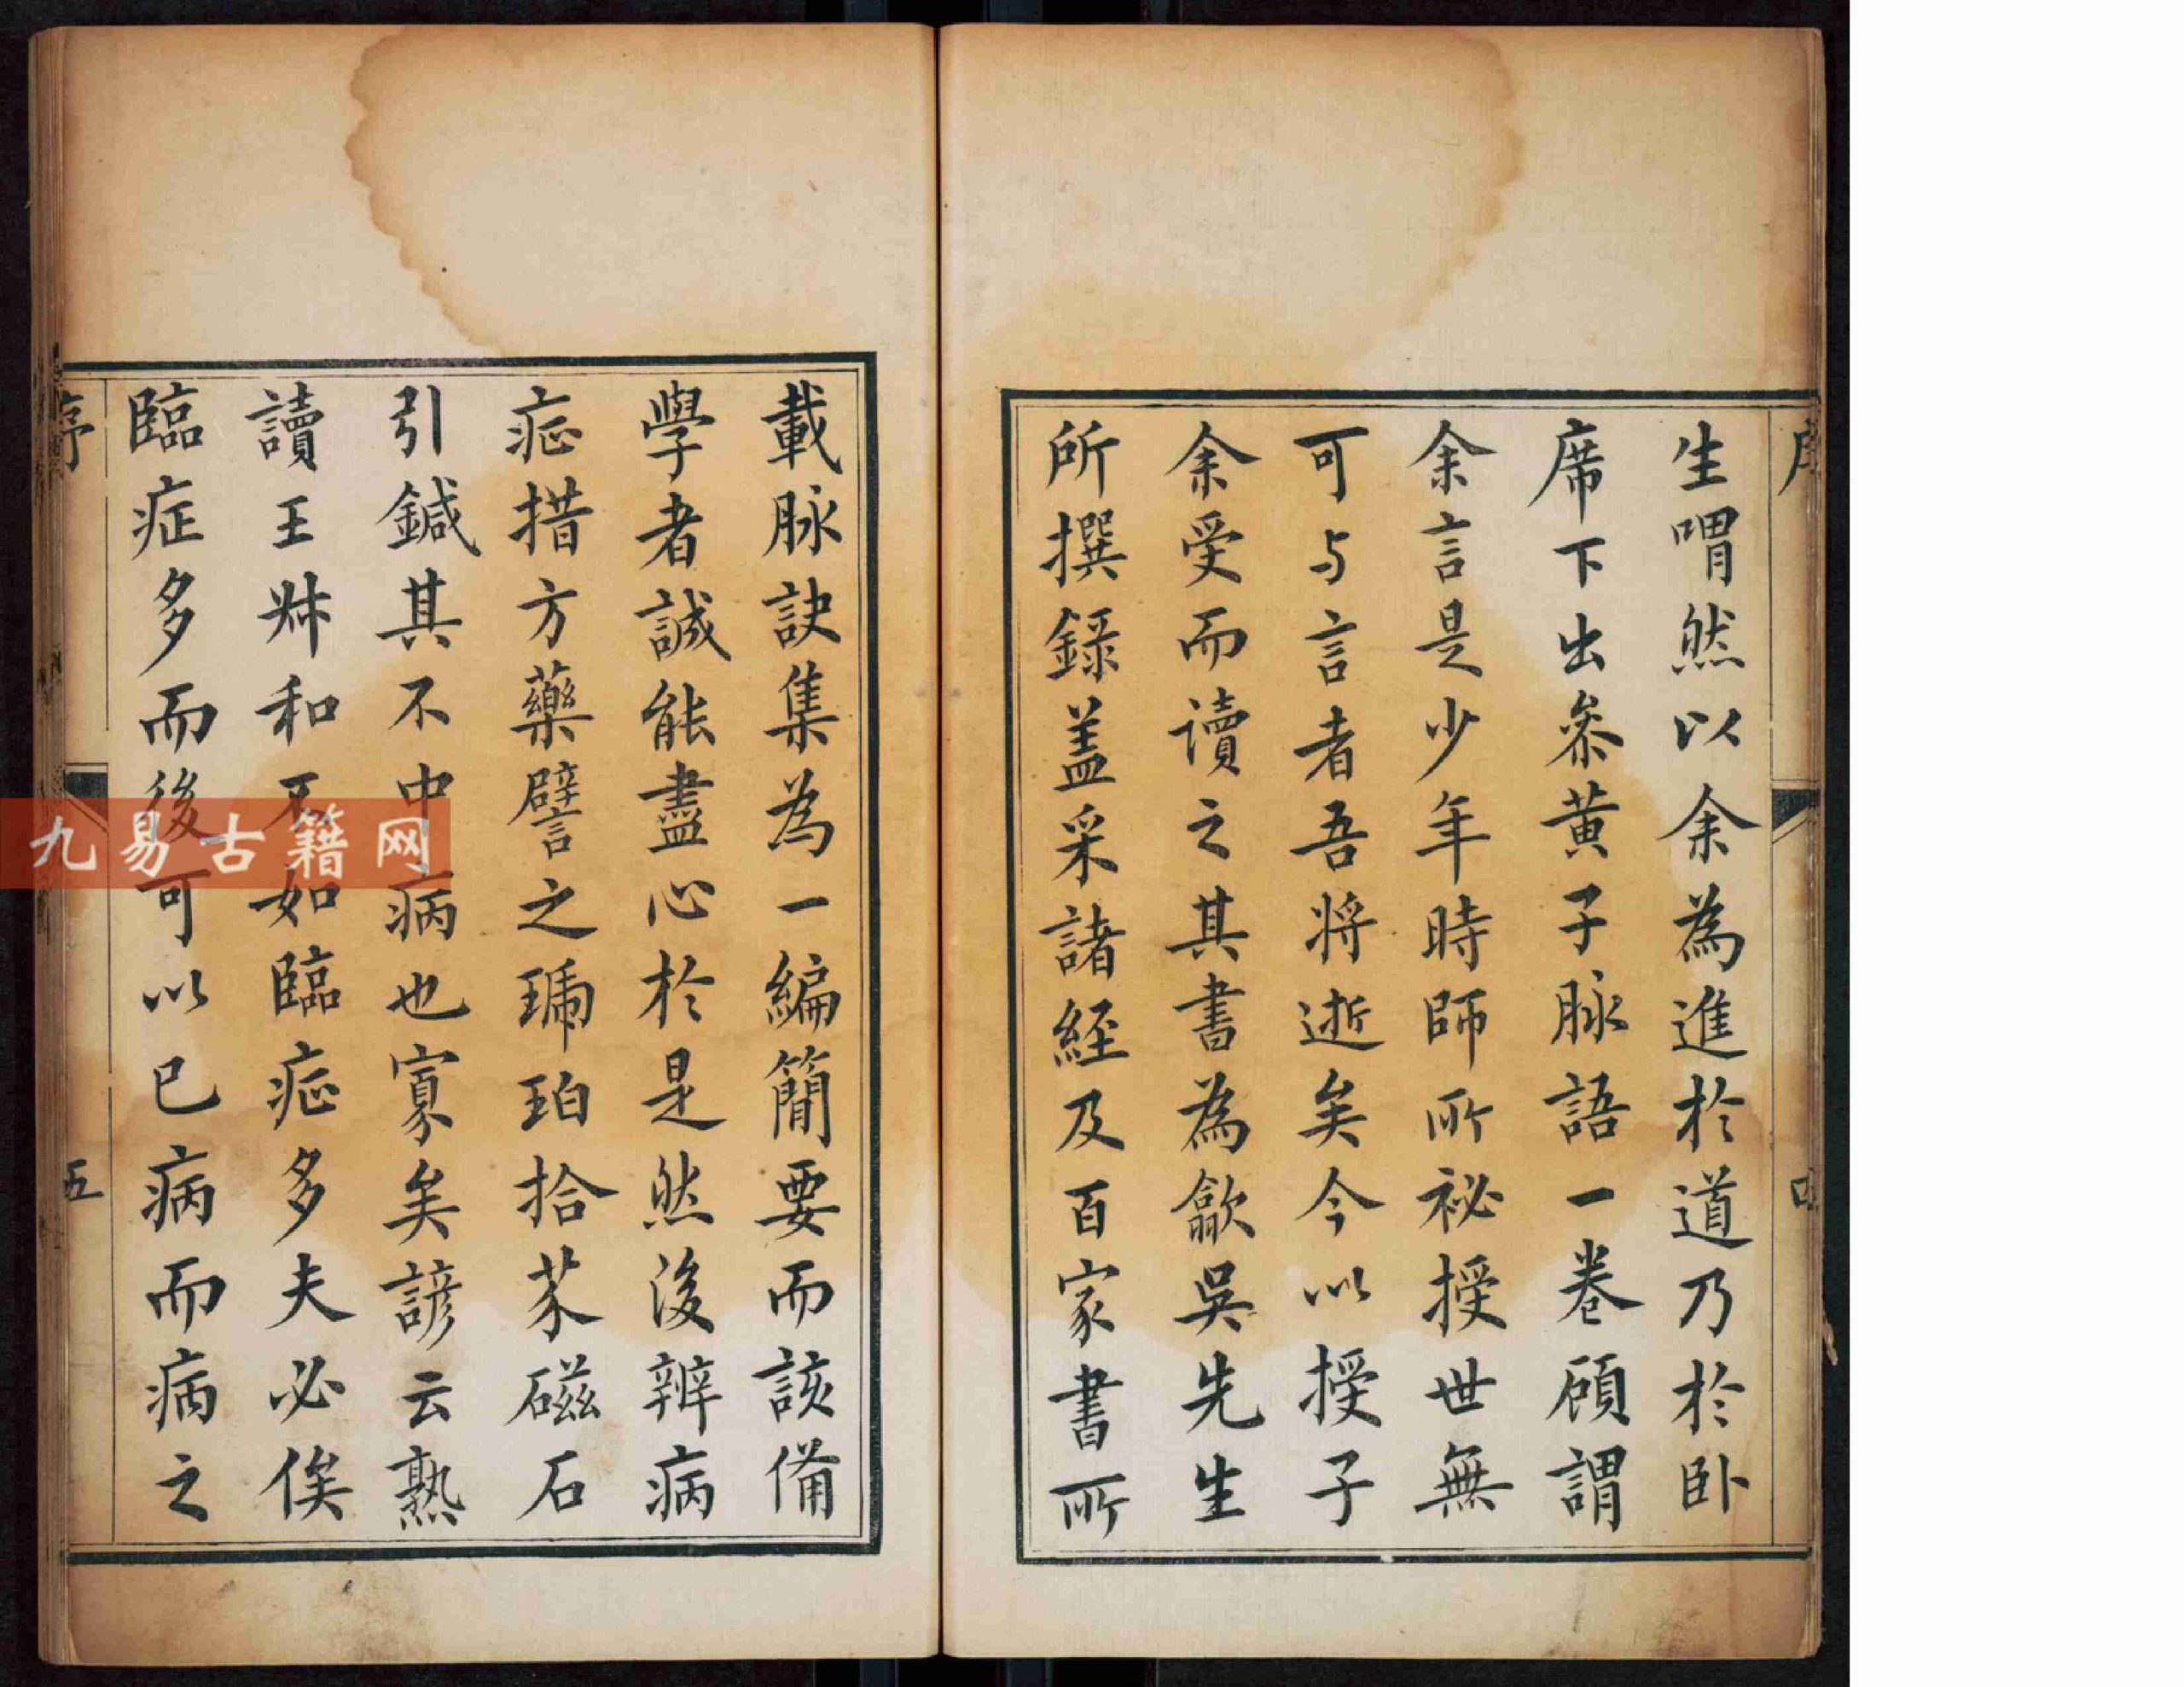 生喟然以余為進於道乃於卧
席下出叅黄子脉語一卷顧謂
余言是少年時師所祕授世無
可与言者吾将逝矣今以授子
余受而讀之其書為歙吳先生
所撰録盖采諸經及百家書所
載脉訣集為一編簡要而該偹
學者誠能盡心於是然後辨病
症措方藥譬之琥珀拾芥磁石
引鍼其不中病也寡矣諺云熟
讀王叔和不如臨症多夫必俟
臨症多而後可以已病而病之
序
五
九易古籍网